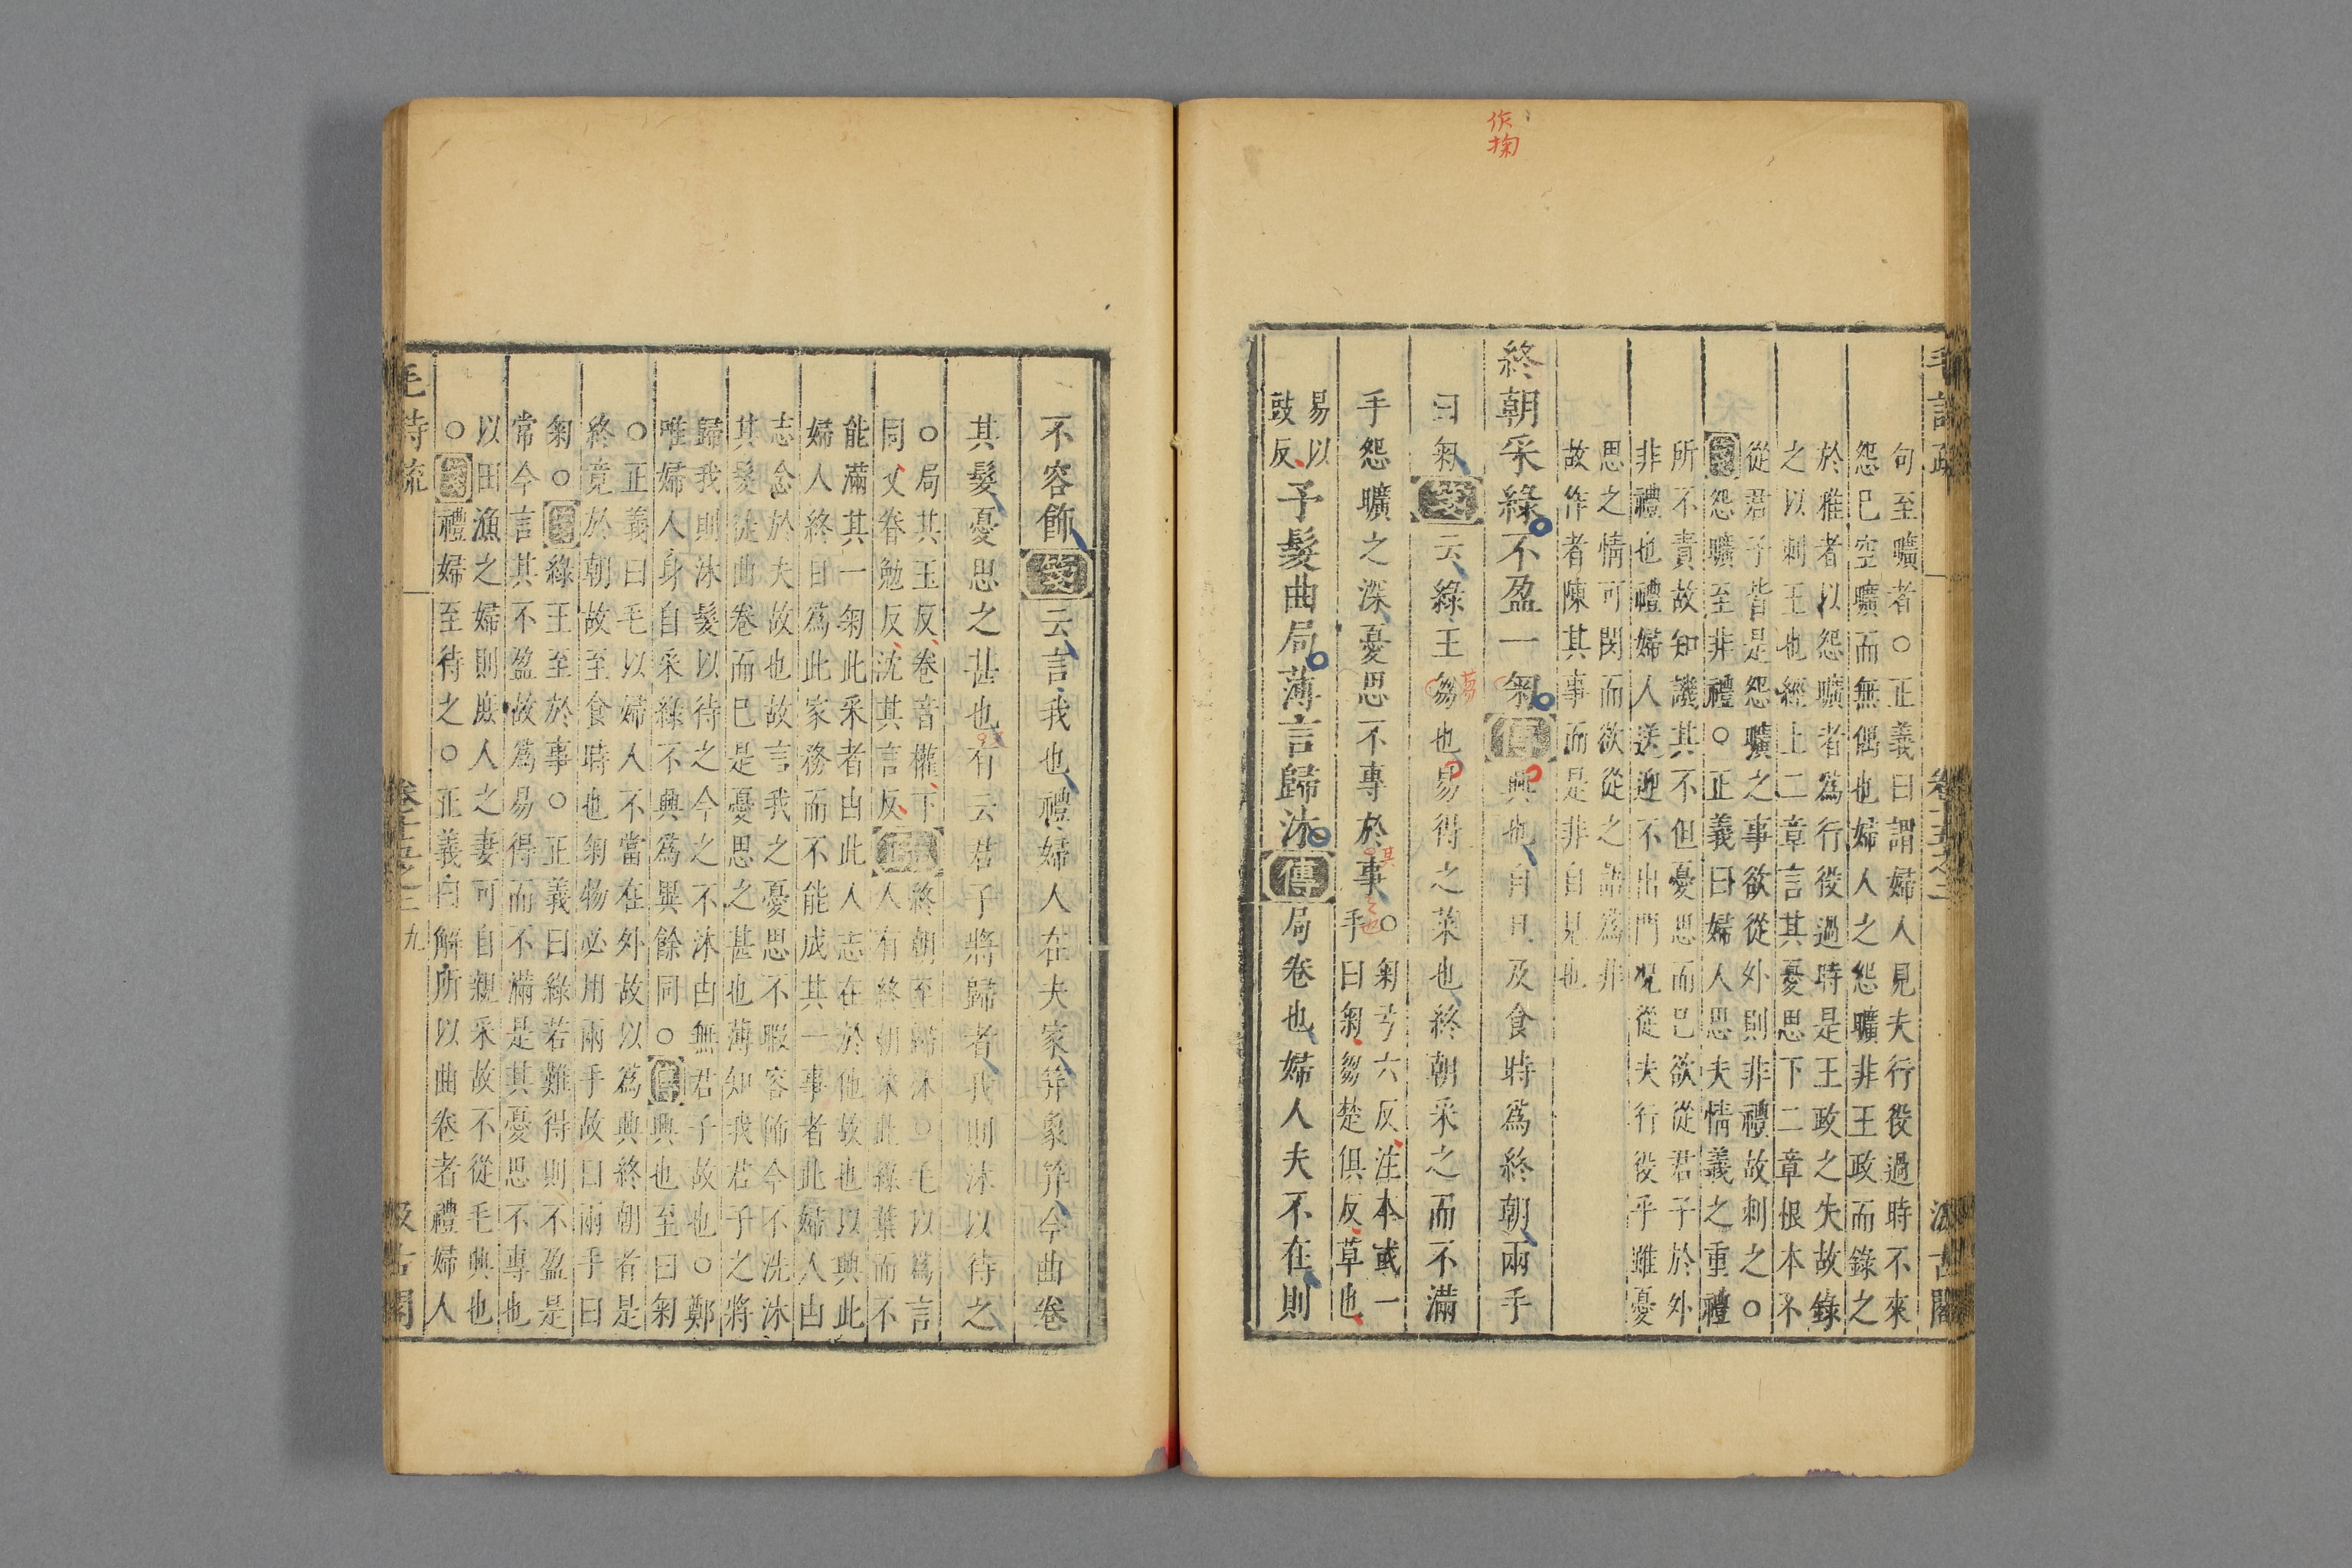 毛詩疏 卷十五之二 汲古閣
句至曠者○正義曰謂婦人見夫行役過時不來
怨已空曠而無偶也婦人之怨曠非王政而錄之
於雅者以怨曠者爲行役過時是王政之失故錄
之以刺王也經上二章言其憂思下二章恨本不
從君子皆是怨曠之事欲從外則非禮故刺之○
箋怨曠至非禮○正義曰婦人思夫情義之重禮
所不責故知譏其不但憂思而已欲從君子於外
非禮也禮婦人送迎不出門況從夫行役乎雖憂
思之情可閔而欲從之語爲非
故作者陳其事而是非自見也
作掬
終朝采綠不盈一匊傳興也自旦及食時爲終朝兩手
曰匊箋云綠王芻也易得之菜也終朝采之而不滿
手怨曠之深憂思不專於事○匊弓六反注本或一
手曰匊芻楚俱反草也
易以
豉反予髮曲局薄言歸沐傳局卷也婦人夫不在則
不容飾箋云言我也禮婦人在夫家笄象笄今曲卷
其髮憂思之甚也有云君子將歸者我則沐以待之
○局其玉反卷音權下
同又眷勉反沈其言反疏終朝至歸沐○毛以爲言
人有終朝采此綠葉而不
能滿其一匊此采者由此人志在於他故也以興此
婦人終日爲此家務而不能成其一事者此婦人由
志念於夫故也故言我之憂思不暇容飾今不洗沐
其髮徒曲卷而已是憂思之甚也薄知我君子之將
歸我則沐髮以待之今之不沐由無君子故也○鄭
唯婦人身自采綠不興爲異餘同○傳興也至曰匊
○正義曰毛以婦人不當在外故以爲興終朝者是
終竟於朝故至食時也匊物必用兩手故曰兩手曰
匊○箋綠王至於事○正義曰綠若難得則不盈是
常今言其不盈故爲易得而不滿是其憂思不專也
以田漁之婦則庶人之妻可自親采故不從毛興也
○箋禮婦至待之○正義曰解所以曲卷者禮婦人
毛詩疏 卷十五之二 九 汲古閣